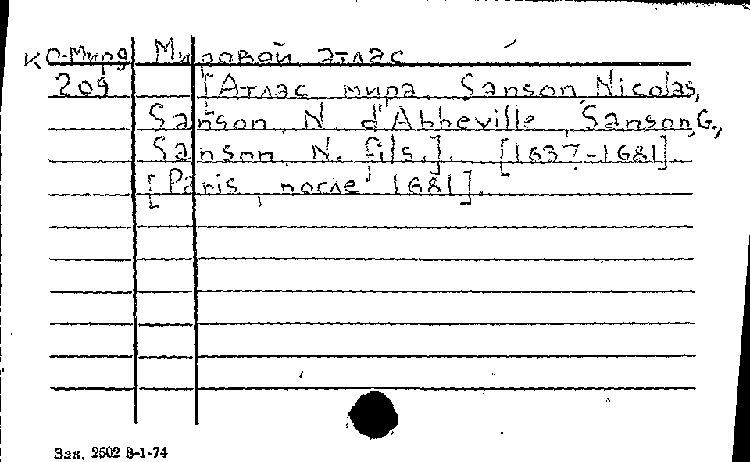 КО-Мирд Мировой атлас
209 [Атлас мира. Sanson Nicolas,
Sanson N. d'Abbeville, Sanson, G.,
Sanson N. fils.]. [1637-1681].
[Paris, после 1681].
Зак. 2602 8-1-74